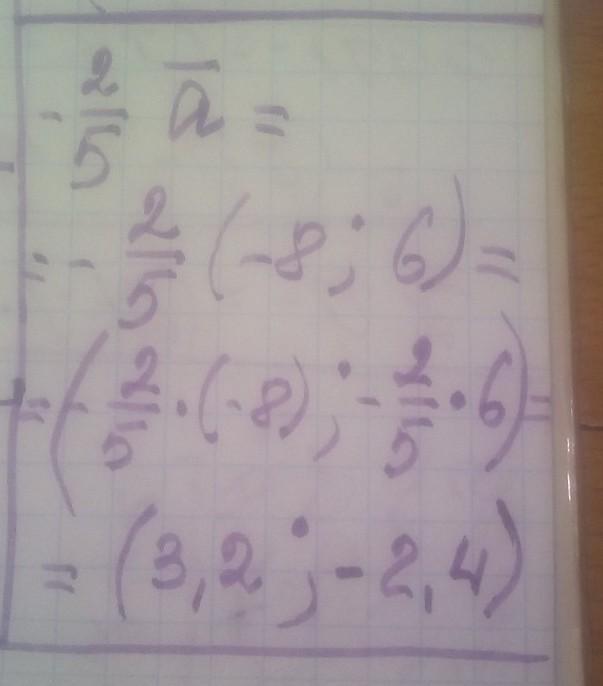 - 2/5 a̅ =
= - 2/5 (-8; 6) =
= (- 2/5 · (-8); - 2/5 · 6) =
= (3,2; -2,4)